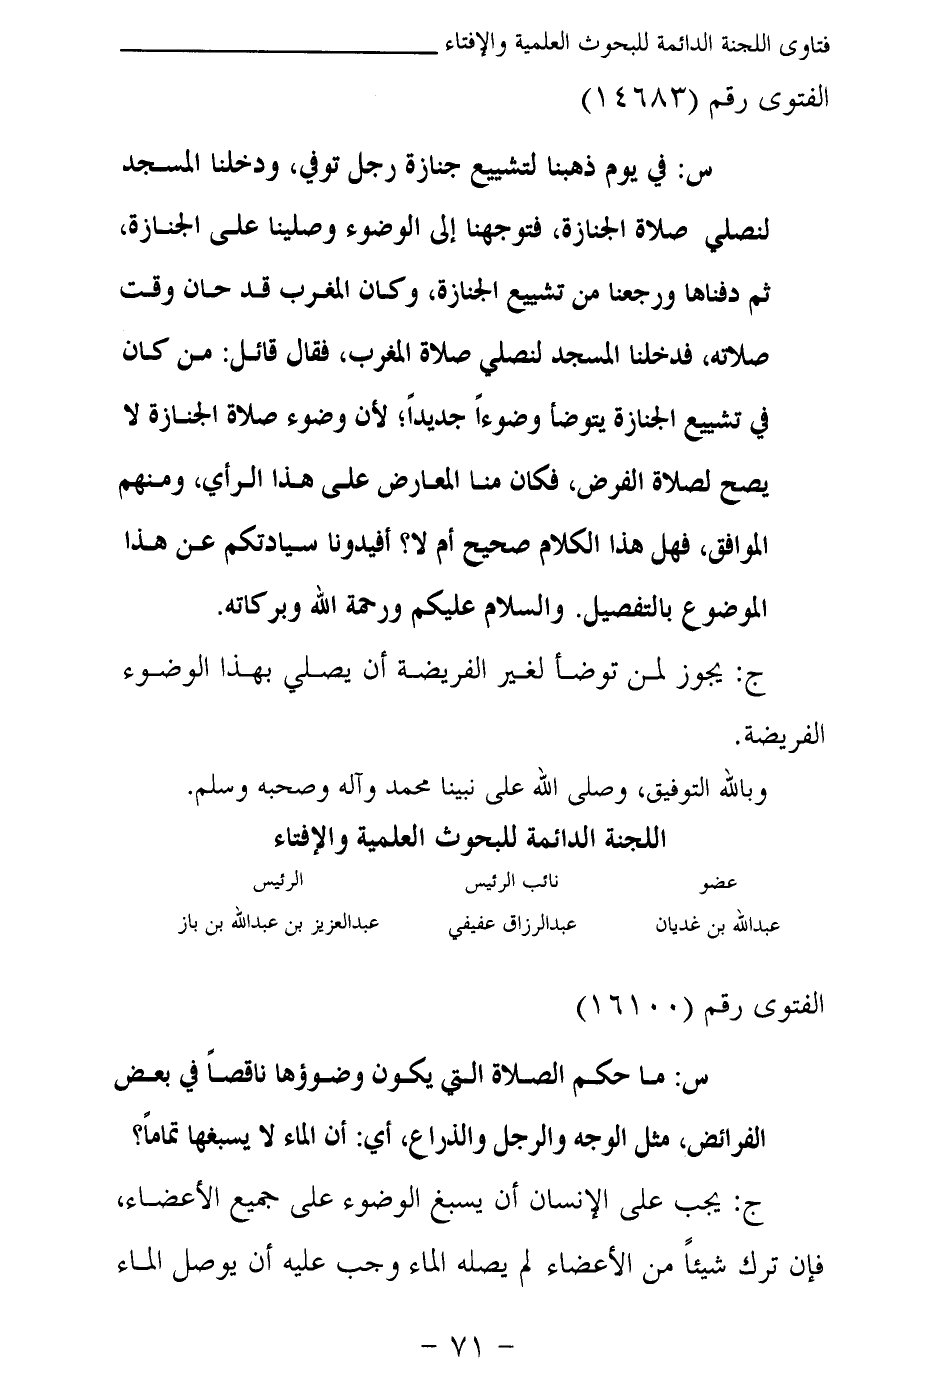 فتاوى اللجنة الدائمة للبحوث العلمية والإفتاء
الفتوى رقم (١٤٦٨٣)
س: في يوم ذهبنا لتشييع جنازة رجل توفي، ودخلنا المسجد
لنصلي صلاة الجنازة، فتوجهنا إلى الوضوء وصلينا على الجنازة،
ثم دفناها ورجعنا من تشييع الجنازة، وكان المغرب قد حان وقت
صلاته، فدخلنا المسجد لنصلي صلاة المغرب، فقال قائل: من كان
في تشييع الجنازة يتوضأ وضوءاً جديداً؛ لأن وضوء صلاة الجنازة لا
يصح لصلاة الفرض، فكان منا المعارض على هذا الرأي، ومنهم
الموافق، فهل هذا الكلام صحيح أم لا؟ أفيدونا سيادتكم عن هذا
الموضوع بالتفصيل. والسلام عليكم ورحمة الله وبركاته.
ج: يجوز لمن توضأ لغير الفريضة أن يصلي بهذا الوضوء
الفريضة.
وبالله التوفيق، وصلى الله على نبينا محمد وآله وصحبه وسلم.
اللجنة الدائمة للبحوث العلمية والإفتاء
عضو نائب الرئيس الرئيس
عبدالله بن غديان عبدالرزاق عفيفي عبدالعزيز بن عبدالله بن باز
الفتوى رقم (١٦١٠٠)
س: ما حكم الصلاة التي يكون وضوؤها ناقصاً في بعض
الفرائض، مثل الوجه والرجل والذراع، أي: أن الماء لا يسبغها تماماً؟
ج: يجب على الإنسان أن يسبغ الوضوء على جميع الأعضاء،
فإن ترك شيئاً من الأعضاء لم يصله الماء وجب عليه أن يوصل الماء
- ٧١ -